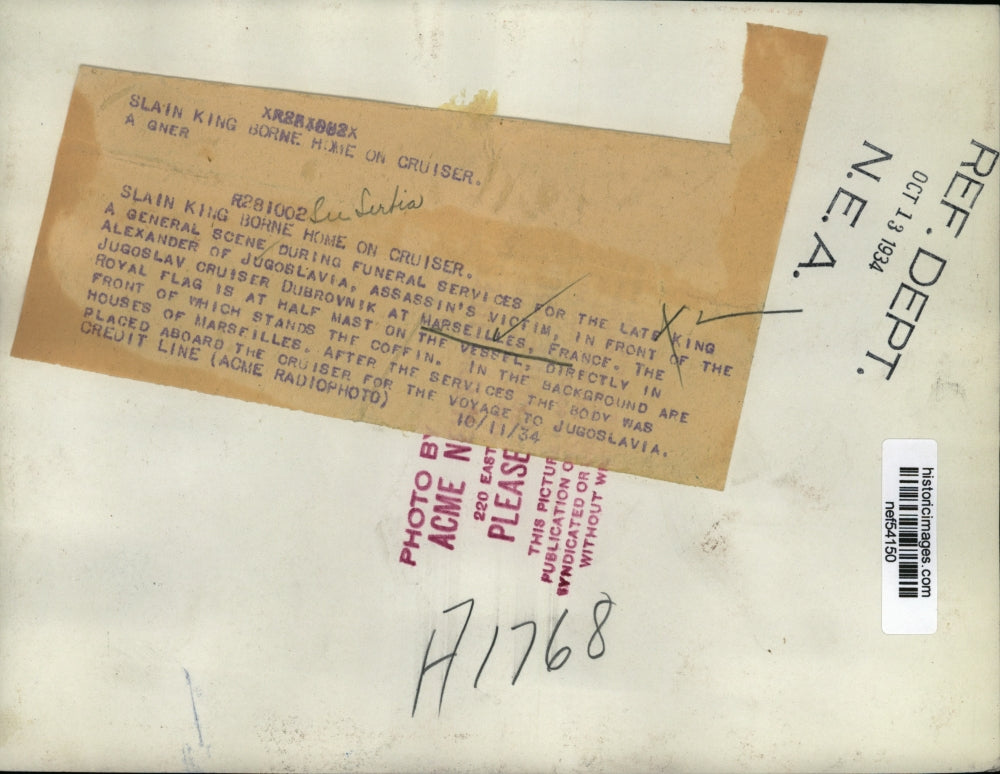 SLAIN KING BORNE HOME ON CRUISER.
A GNER
R281002 See Serbia
SLAIN KING BORNE HOME ON CRUISER.
A GENERAL SCENE DURING FUNERAL SERVICES FOR THE LATE KING
ALEXANDER OF JUGOSLAVIA, ASSASSIN'S VICTIM, IN FRONT OF THE
JUGOSLAV CRUISER DUBROVNIK AT MARSEILLES, FRANCE. THE
ROYAL FLAG IS AT HALF MAST ON THE VESSEL, DIRECTLY IN
FRONT OF WHICH STANDS THE COFFIN. IN THE BACKGROUND ARE
HOUSES OF MARSEILLES. AFTER THE SERVICES THE BODY WAS
PLACED ABOARD THE CRUISER FOR THE VOYAGE TO JUGOSLAVIA.
CREDIT LINE (ACME RADIOPHOTO) 10/11/34
REF. DEPT.
OCT 13 1934
N.E.A.
PHOTO BY
ACME N
220 EAST
PLEASE
THIS PICTUR
PUBLICATION O
SYNDICATED OR
WITHOUT W
H1768
historicimages.com
nef54150